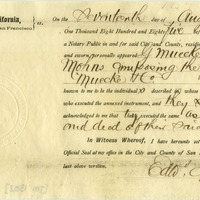 alifornia,
On the Seventeenth day of Au
One Thousand Eight Hundred and Eighty five be
a Notary Public in and for said City and County, residing
and sworn, personally appeared
Muecke
composing the
Muecke & Co
known to me to be the individual described in whose
who executed the annexed instrument, and they
acknowledged to me that they executed the same as
and deed of their said
In Witness Whereof, I have hereunto set
Official Seal at my office in the City and County of San
last above written.
Edw.